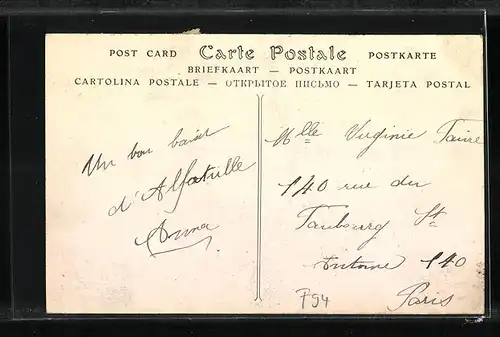 POST CARD Carte Postale POSTKARTE
BRIEFKAART — POSTKAART
CARTOLINA POSTALE — ОТКРЫТОЕ ПИСЬМО — TARJETA POSTAL
Un bon baiser
d'Alfatville
Anna
Mlle Virginie Faivre
140 rue du
Faubourg St
Antoine 140
Paris
F94